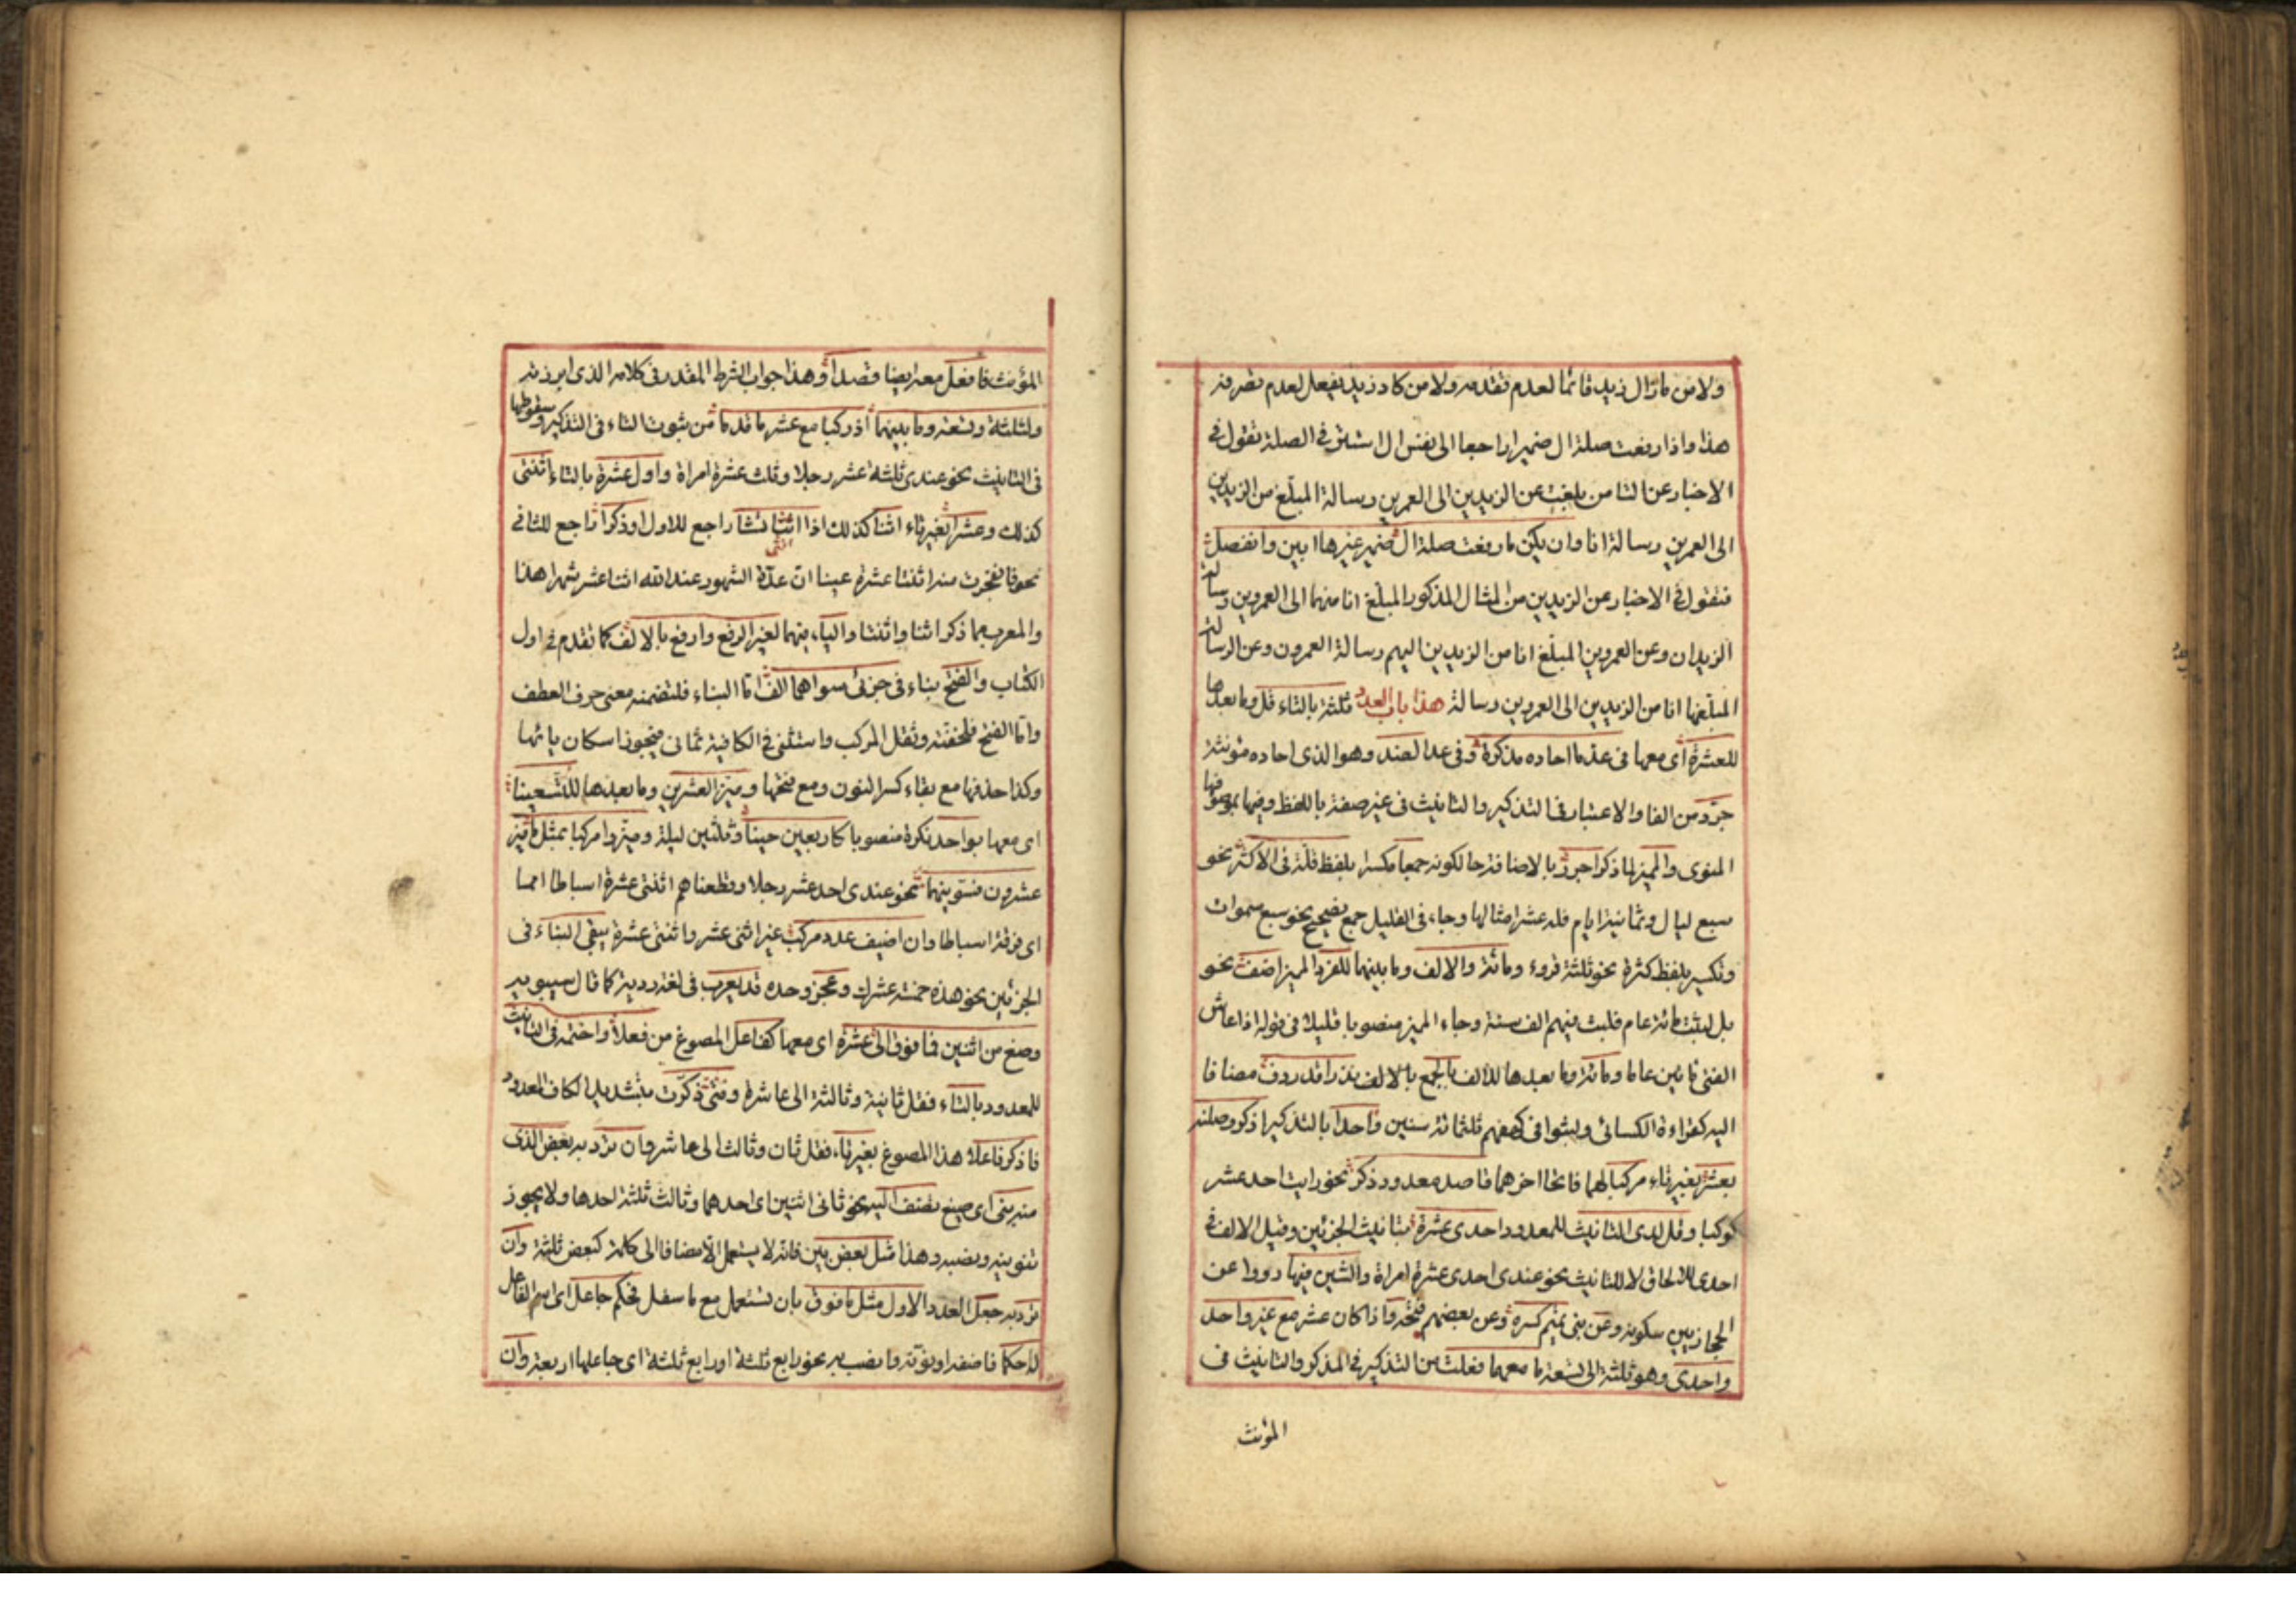 ولا من مازال زيد قائما لعدم تقدمه ولا من كاد زيد يفعل لعدم تصرفه
هذا واذا رفعت صلة ال ضميرا راجعا الى نفس ال استتر في الصلة تقول في
الاخبار عن التا من بلغت عن الزيدين الى العمرين رسالة المبلغ من الزيدين
الى العمرين رسالة انا وان يكن ما رفعت صلة ال ضمير غيرها ابين وانفصل
فتقول في الاخبار عن الزيدين من المثال المذكور المبلغ انا منهما الى العمروين رسالة
الزيدان وعن العمروين المبلغ انا من الزيدين اليهم رسالة العمرون وعن الرسالة
المبلغها انا من الزيدين الى العمروين رسالة هذا باب العدد ثلثة بالتاء قل وما بعدها
للعشرة اى معها فى عد ما احاده مذكرة وفى عد الضد وهو الذى احاده مونثة
جرد من التا والاعتبار فى التذكير والتانيث فى غير صفة باللفظ وفيها بموصوفها
المنوى والمميز لما ذكر اجرر بالاضافة حا لكونه جمعا مكسرا بلفظ قلة فى الاكثر نحو
سبع ليال وثمانية ايام فله عشر امثالها وجاء فى القليل جمع تصحيح نحو سبع سموات
وتكسير بلفظ كثرة نحو ثلثة قروء ومائة والالف وما بينهما للفرد المميز اضف نحو
بل لبثت مائة عام فلبث فيهم الف سنة وجاء المميز منصوبا قليلا فى قوله اذا عاش
الفتى مائتين عاما ومائة وما بعدها للالف بالجمع بالالف نزرا قد ردف مضافا
اليه كقراءة الكسائى ولبثوا فى كهفهم ثلثمائة سنين واحدا بالتذكير اذكر وصلنه
بعشر بغير تاء مركبا لهما فاتحا اخرهما قاصد معدود ذكر نحو رايت احد عشر
كوكبا وقل لدى التانيث للمعدود احدى عشرة بتانيث الجزئين وقيل الالف فى
احدى للالحاق لا للتانيث نحو عندى احدى عشرة امراة والشين فيها رووا عن
الحجازيين سكونه وعن بنى تميم كسره وعن بعضهم فتحه واذا كان عشر مع غير واحد
واحدى وهو ثلثة الى تسعة ما معهما فعلت من التذكير فى المذكر والتانيث فى
المؤنث
المؤنث فافعل معه ايضا قصدا وهذا جواب الشرط المقدر فى كلامه الذى ابرزته
ولثلثة وتسعة وما بينهما اذ ركبا مع عشر ما قدما من ثبوت التاء فى التذكير وسقوطها
فى التانيث نحو عندى ثلثة عشر رجلا وثلث عشرة امراة واول عشرة بالتاء اثنتى
كذلك وعشرا بغير تاء اثنا كذلك اذا انثى تشا راجع للاول او ذكرا راجع للثانى
نحو فانفجرت منه اثنتا عشرة عينا ان عدة الشهور عند الله اثنا عشر شهرا هذا
والمعرب مما ذكر اثنا واثنتا واليا فيهما لغير الرفع وارفع بالالف كما تقدم فى اول
الكتاب والفتح بناء فى جزئى سواهما الف اما البناء فلتضمنه معنى حرف العطف
واما الفتح فلخفته وثقل المركب واستثنى فى الكافية ثمانى فيجوز اسكان يائها
وكذا حذفها مع بقاء كسر النون ومع فتحها وميز العشرين وما بعدها للتسعينا
اى معها بواحد نكرة منصوبا كاربعين حينا وثلثين ليلة وميزوا مركبا بمثل ما ميز
عشرون فسوينهما نحو عندى احد عشر رجلا وقطعناهم اثنتى عشرة اسباطا امما
اى فرقة اسباطا وان اضيف عدد مركب غير اثنى عشر واثنتى عشرة يبقى البناء فى
الجزئين نحو هذه خمسة عشرك وعجز وحده قد يعرب فى لغة ردية كما قال سيبويه
وصغ من اثنين فما فوق الى عشرة اى معها كفاعل المصوغ من فعلا واختمه فى التانيث
للمعدود بالتاء فقل ثانية وثالثة الى عاشرة ومتى ذكرت بتشديد الكاف المعدود
فاذكر فاعلا هذا المصوغ بغير تاء فقل ثان وثالث الى عاشر وان ترد به بعض الذى
منه بنى اى صيغ تضف اليه نحو ثانى اثنين اى احدهما وثالث ثلثة احدها ولا يجوز
تنوينه ونصبه وهذا مثل بعض بين فانه لا يستعمل الا مضافا الى كله كبعض ثلثة وان
ترد به جعل العدد الاول مثل ما فوق بان تستعمل مع ما سفل فحكم جاعل اى اسم الفاعل
له احكما فاضفه او نونه وانصب به نحو رابع ثلثة او رابع ثلثة اى جاعلها اربعة وان